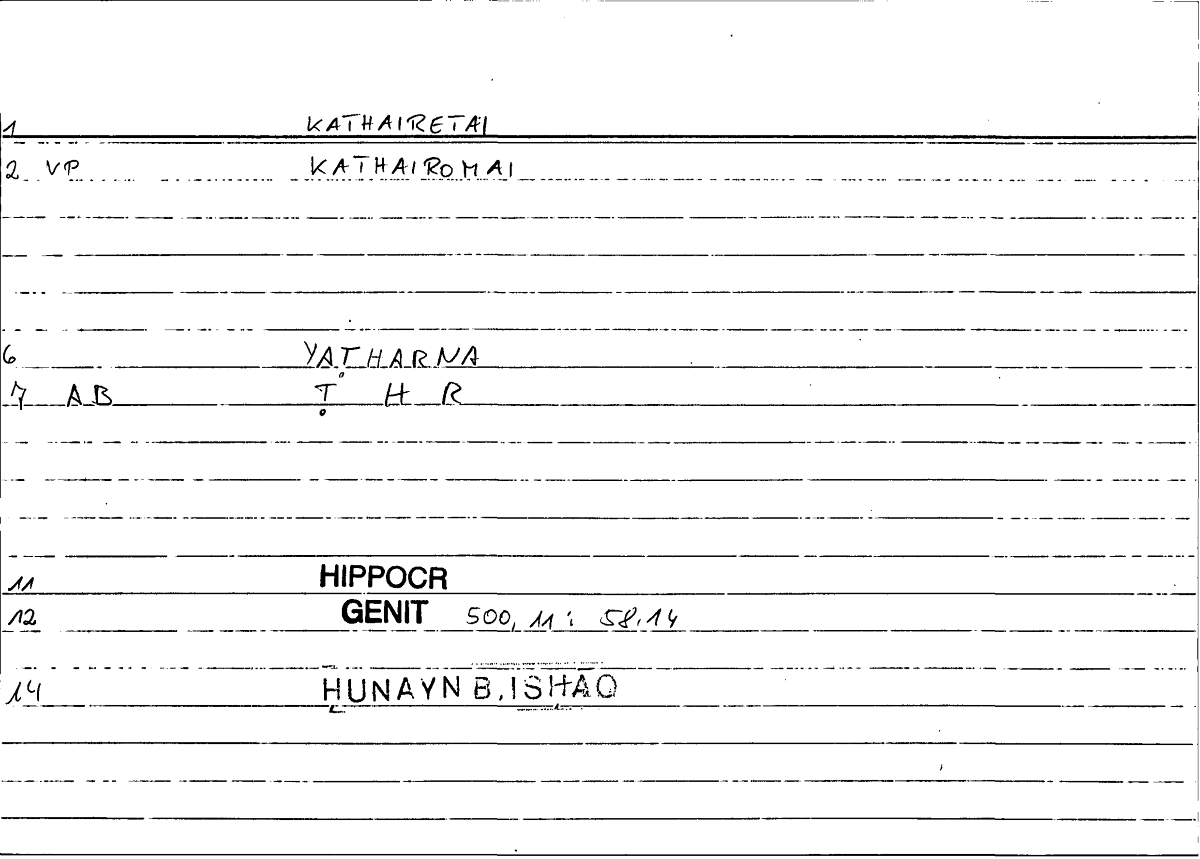 1 KATHAIRETAI
2 VP KATHAIROMAI
6 YAṬHARNA
7 AB Ṭ H R
11 HIPPOCR
12 GENIT 500, 11 : 58.14
14 ḤUNAYN B. ISḤĀQ